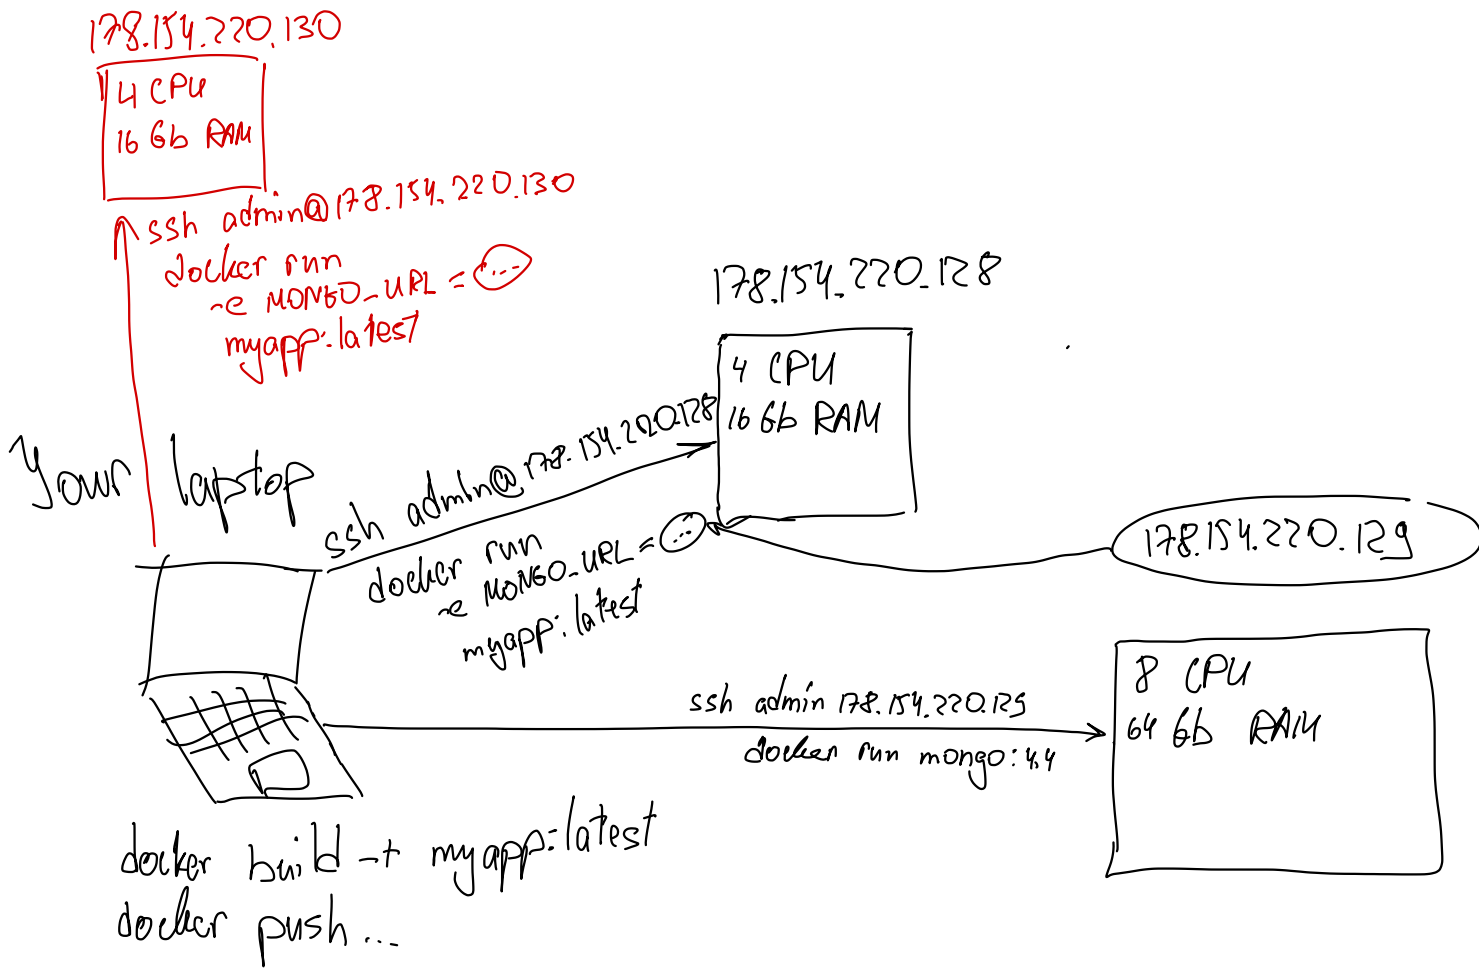 178.154.220.130
4 CPU
16 Gb RAM
ssh admin@178.154.220.130
docker run
-e MONGO_URL = ...
myapp:latest
178.154.220.128
4 CPU
16 Gb RAM
Your laptop
ssh admin@178.154.220.128
docker run
-e MONGO_URL = ...
myapp:latest
178.154.220.129
8 CPU
64 Gb RAM
ssh admin 178.154.220.129
docker run mongo:4.4
docker build -t myapp:latest
docker push...